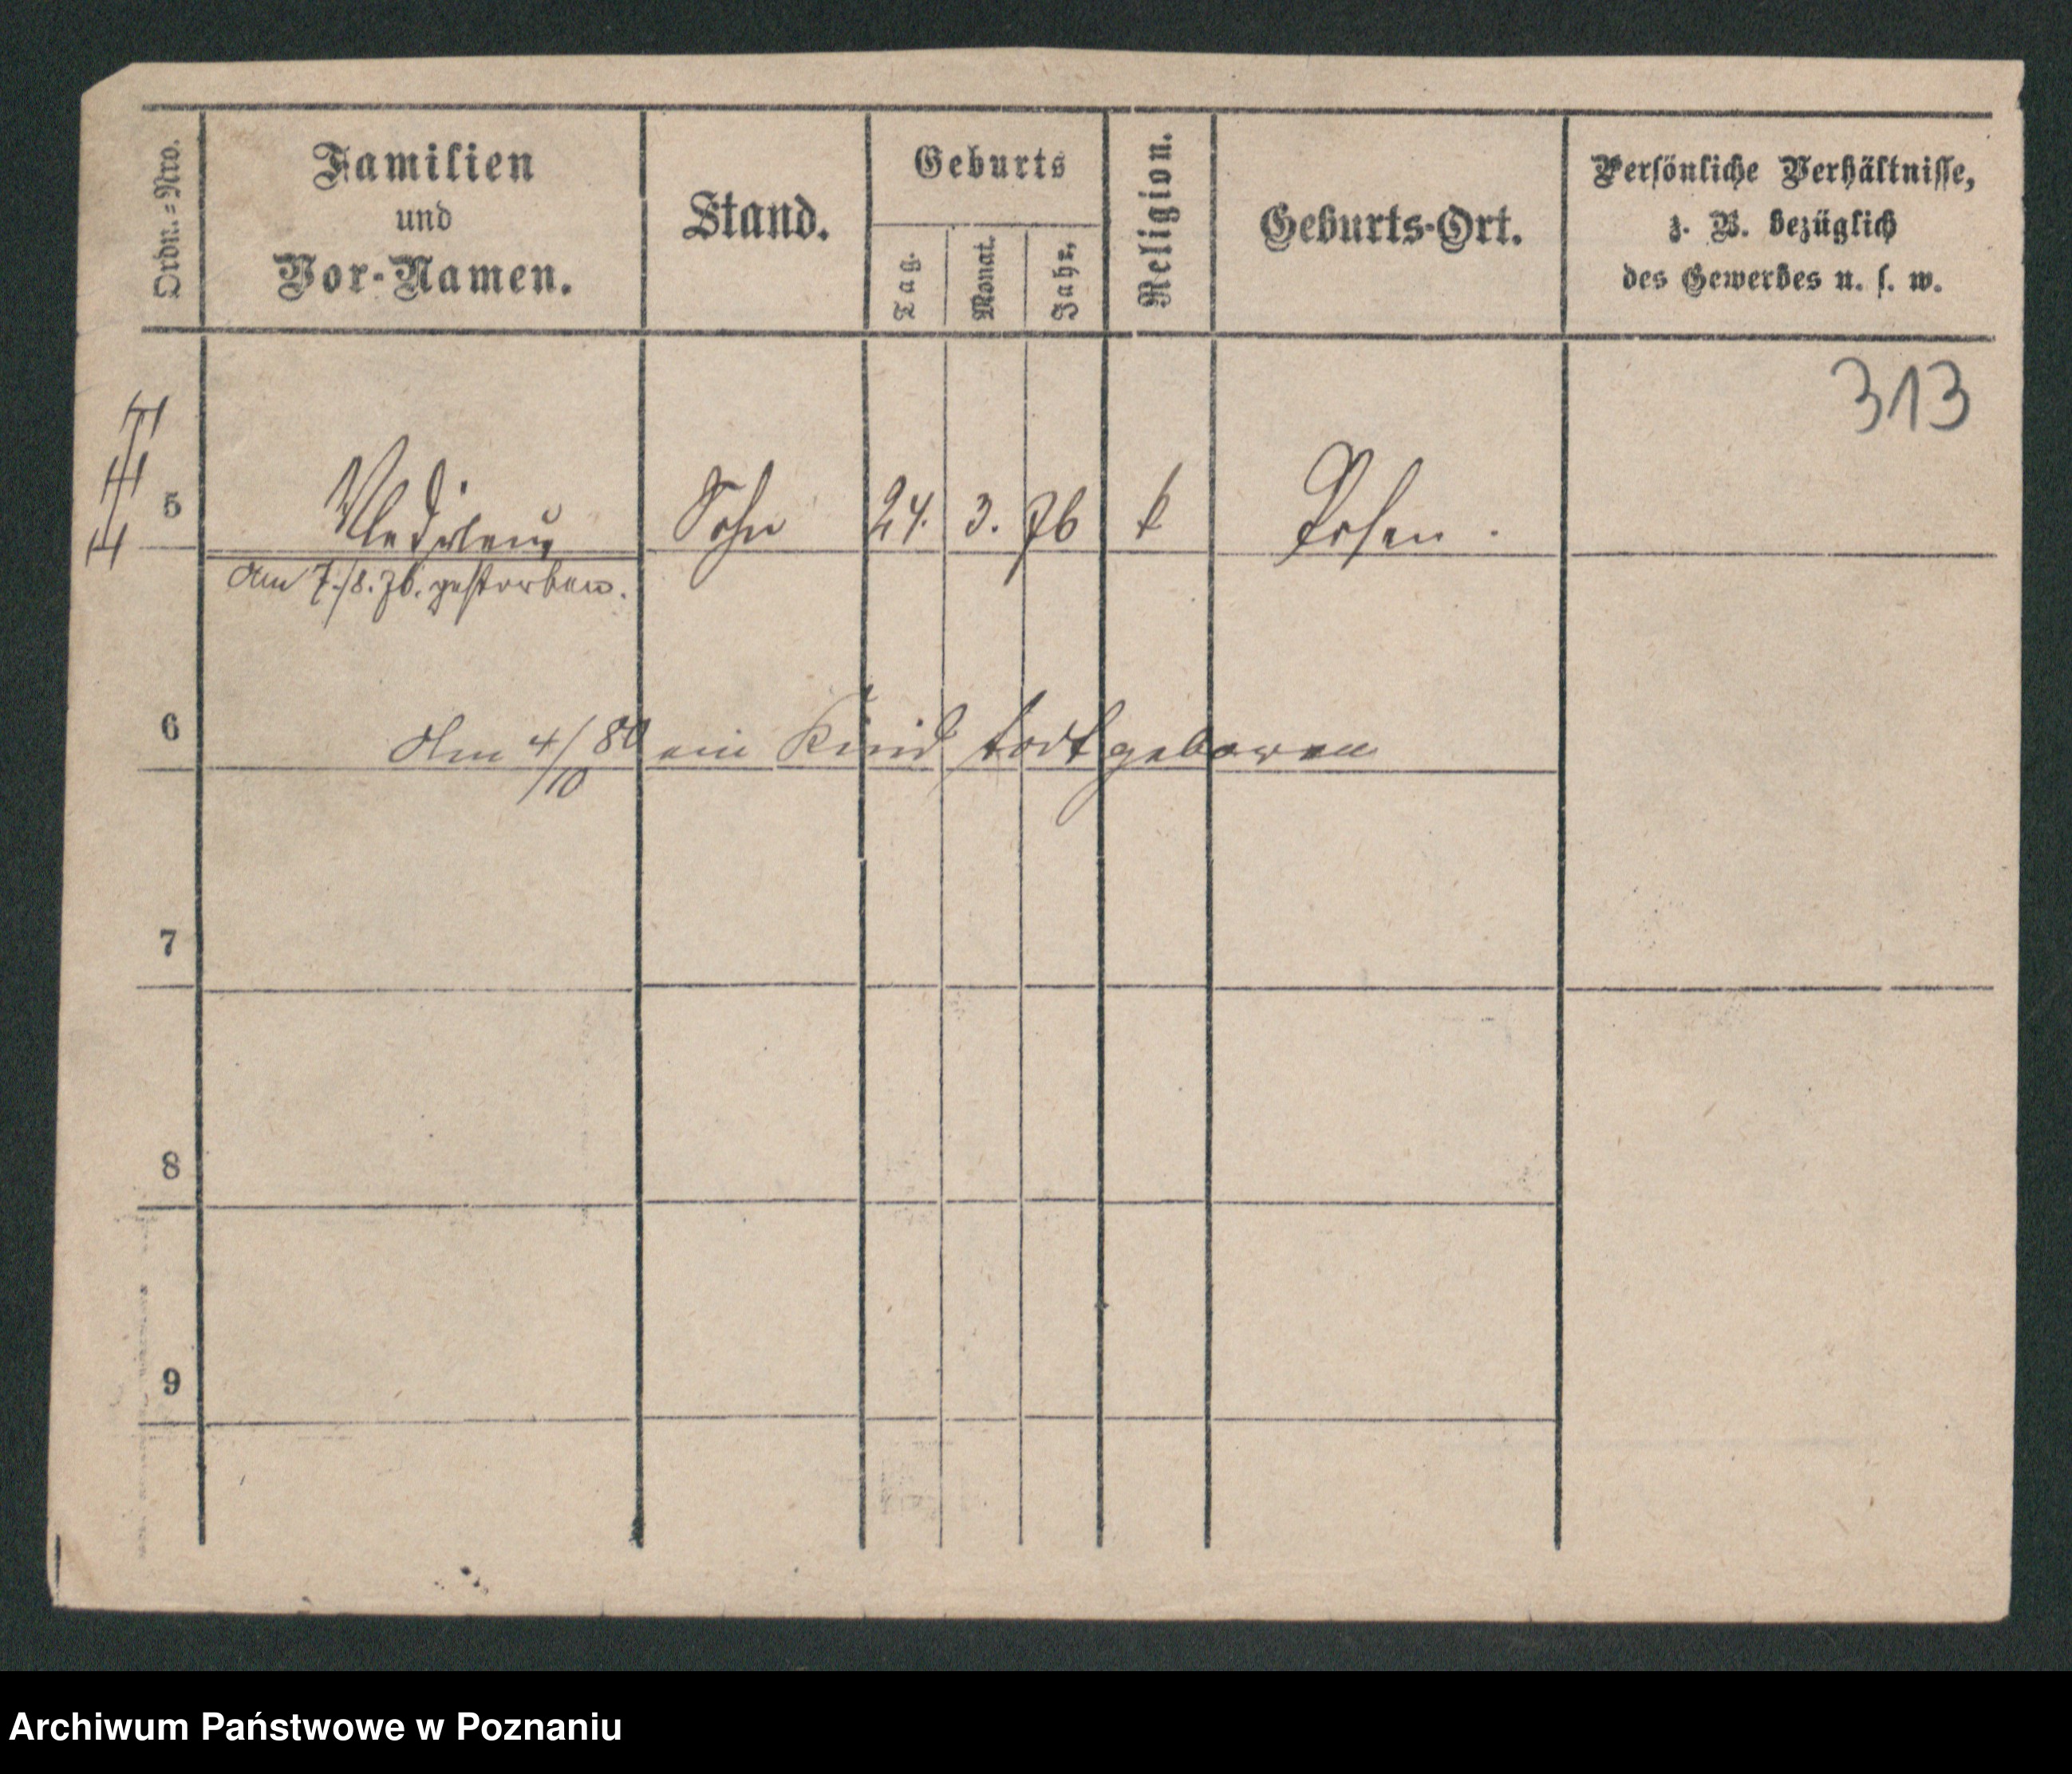 Ordn.=Nro.
Familien
und
Vor-Namen.
Stand.
Geburts
Tag.
Monat.
Jahr.
Religion.
Geburts-Ort.
Persönliche Verhältnisse,
z. B. bezüglich
des Gewerbes u. s. w.
313
5 Sohn 24. 3. 76 k Posen.
Am 7./8. 76. gestorben.
6 Am 4/10 80 ein Kind todtgeboren
7
8
9
Archiwum Państwowe w Poznaniu